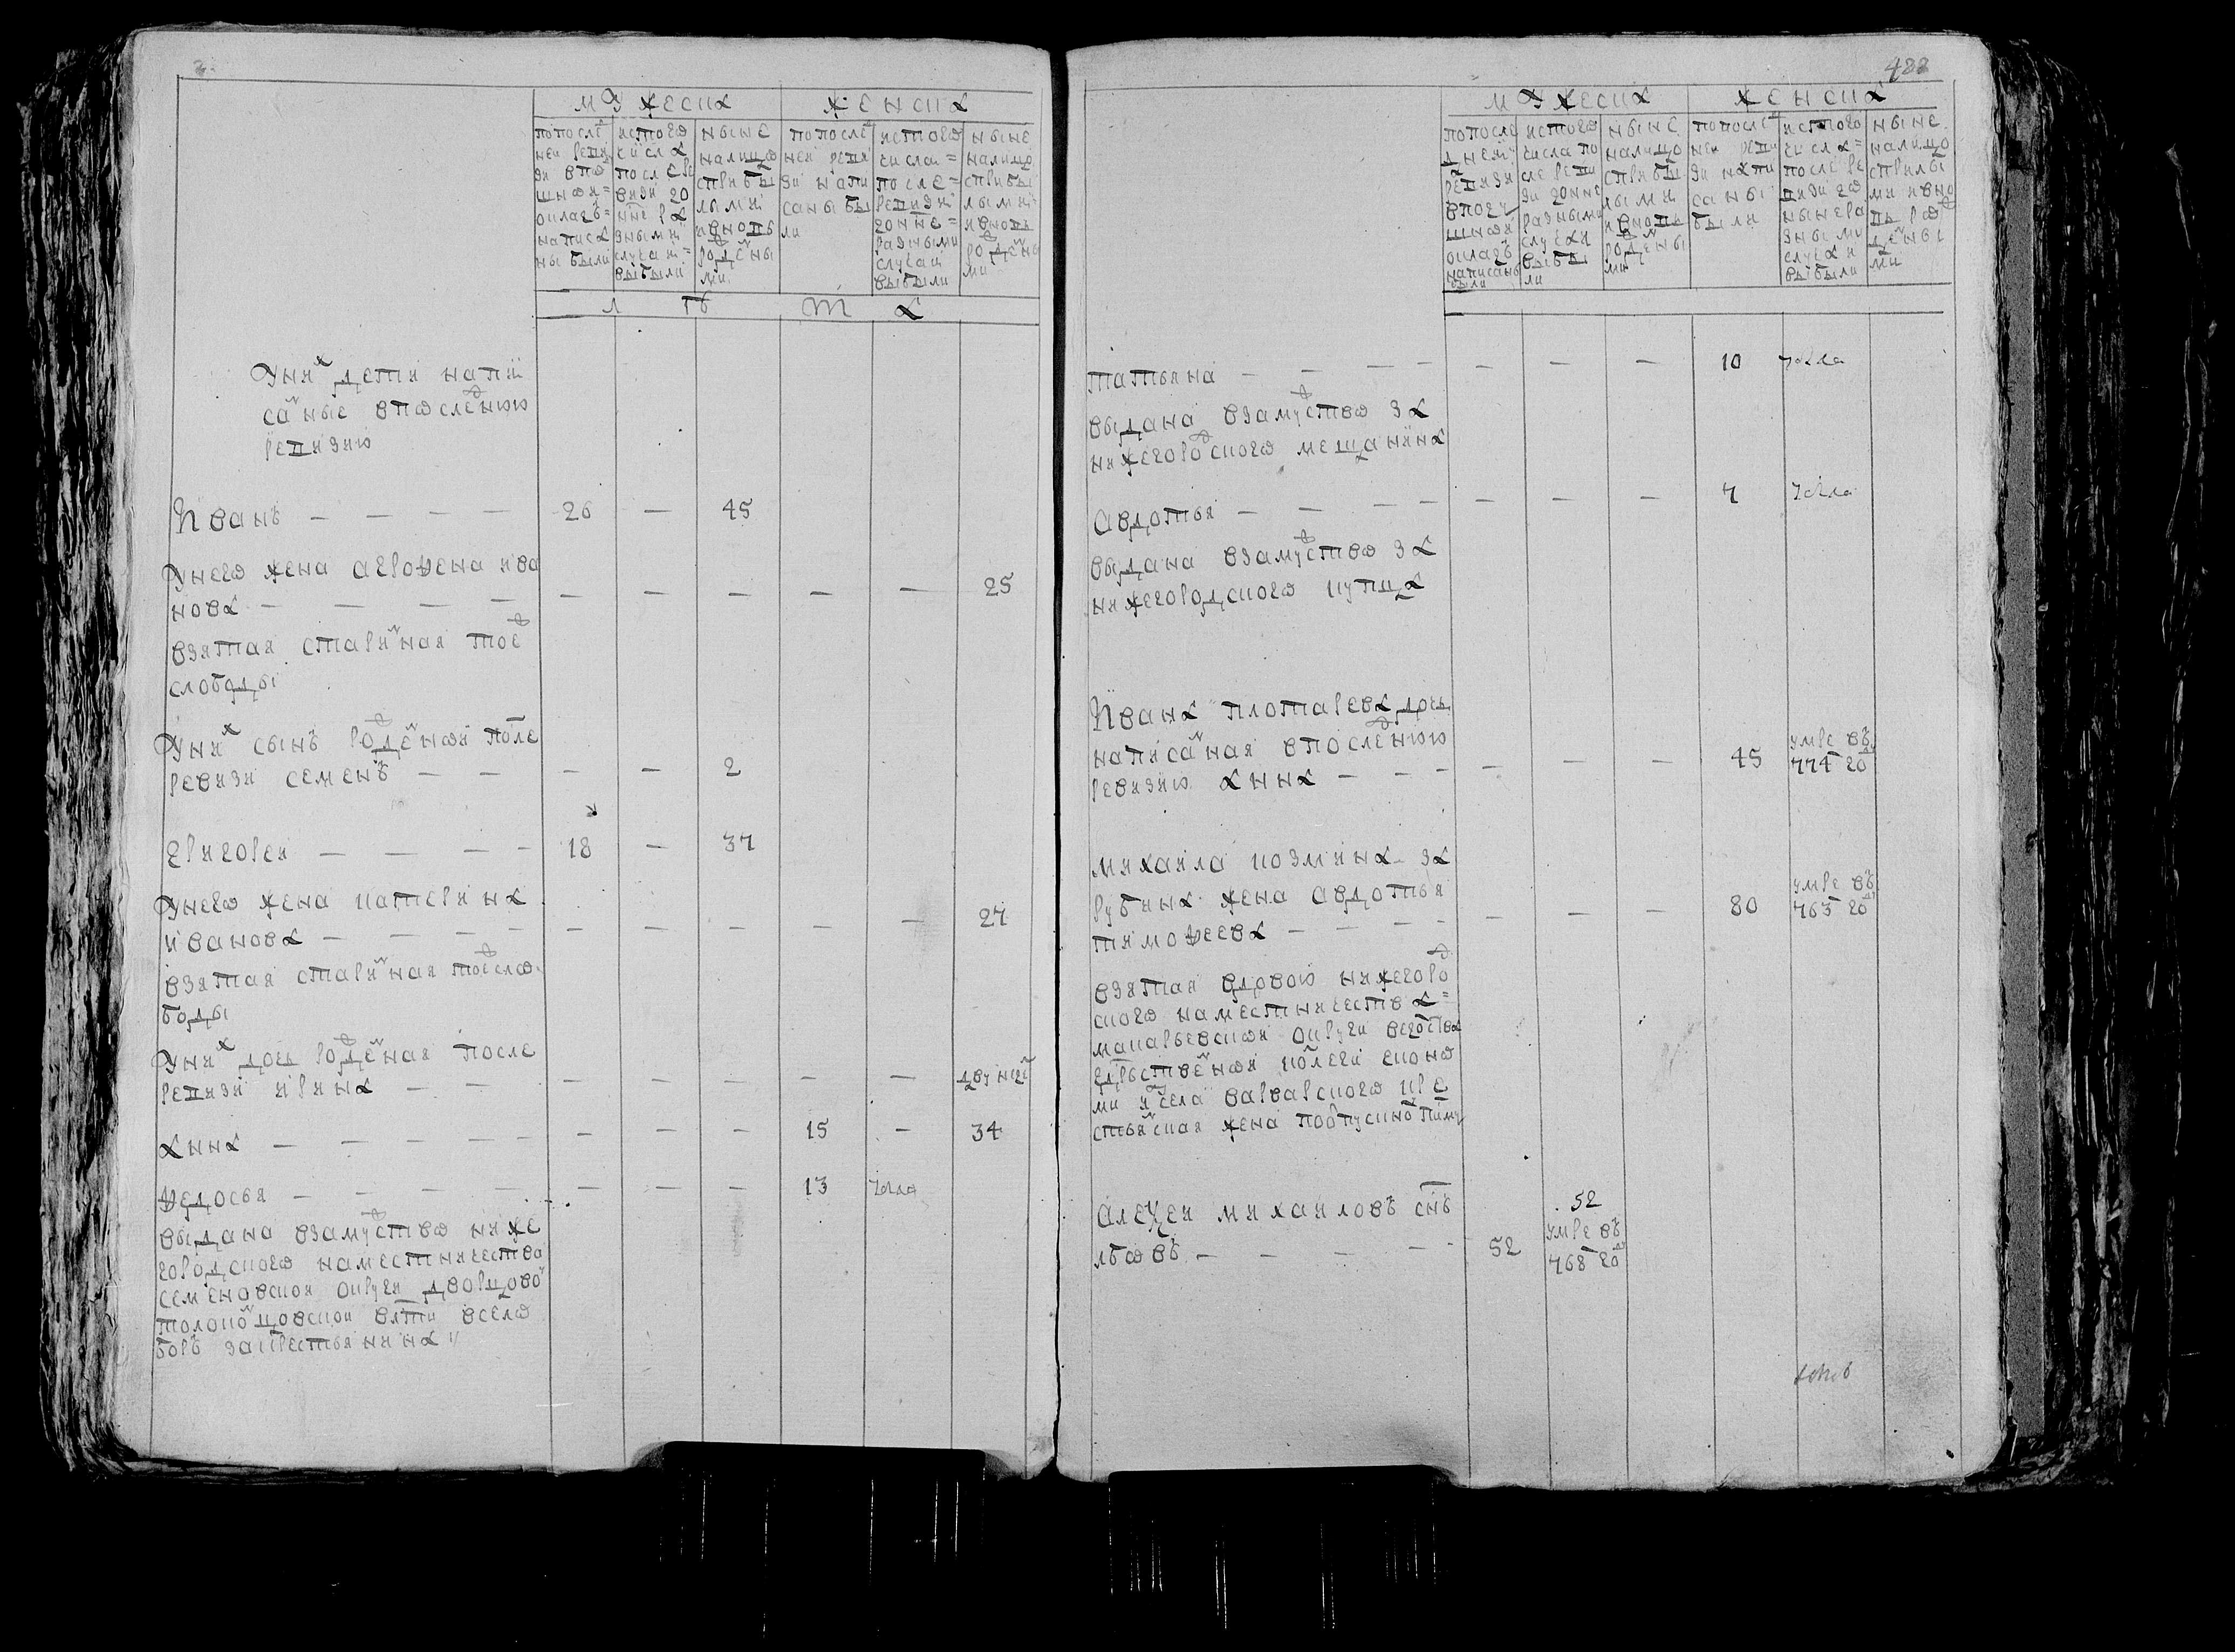 мужеска
женска
попослѣ
ней реви
зи впо
шно
окладѣ
написа
ны были
истого
числа
после ре
визи до
нне ра
зными
случаи
выбыли
ныне
налицо
сприбы
лыми
ивновь
рожены
ми
попослѣ
ней реви
зи напи
саны бы
ли
истого
числа
после
ревизи
донне
разными
случаи
выбыли
ныне
налицо
сприбы
лыми
ивновь
рожены
ми
лѣта
Уних дети напи
саные впоследнюю
ревизию
Иванъ — — — — 26 — 45
Унего жена агрофена ива
нова — — — — — — — — — 25
взятая стариная тоеж
слободы
Уних сынъ рожденой после
ревизи семенъ — — — — 2
Григореи — — — — 18 — 37
Унего жена катерина
иванова — — — — — — — — — 27
взятая стариная тоежсло
боды
Уних дочь рожденая после
ревизи ирина — — — — — — — двунеде
анна — — — — — — — — 15 — 34
федосья — — — — — — — 13
выдана взамужство ниже
городского наместничества
семеновской округи дворцовой
толоконцовской влсти всело
боръ закрестьянина
488
мужеска
женска
попосле
днему
ревизи
вподу
шной
окладѣ
написаны
были
истого
числа по
сле реви
зи донне
разными
случаи
выбы
ли
ныне
налицо
сприбы
лыми
ивновь
рожены
ми
попослѣ
ней реви
зи напи
саны
были
истого
числа
после ре
визи до
ныне ра
зными
случаи
выбыли
ныне
налицо
сприбы
ми ивно
вь рож
дены
ми
татьяна — — — — — — — 10
выдана взамужство за
нижегородского мещанина
авдотья — — — — — — — 7
выдана взамужство за
нижегородского купца
Ивана дочь
написаная впоследнюю
ревизию анна — — — — — — 45 умре въ
774 год
михаила козмина за
рубина жена авдотья
тимофеева — — — — — — 80 умре въ
763 год
взятая вдовою нижегоро
ского наместничества
макарьевской округи
колеги еконо
ми села варварского кре
стьянская жена
алексеи михаиловъ снъ
львовъ — — — — 52 52
умре въ
768 год